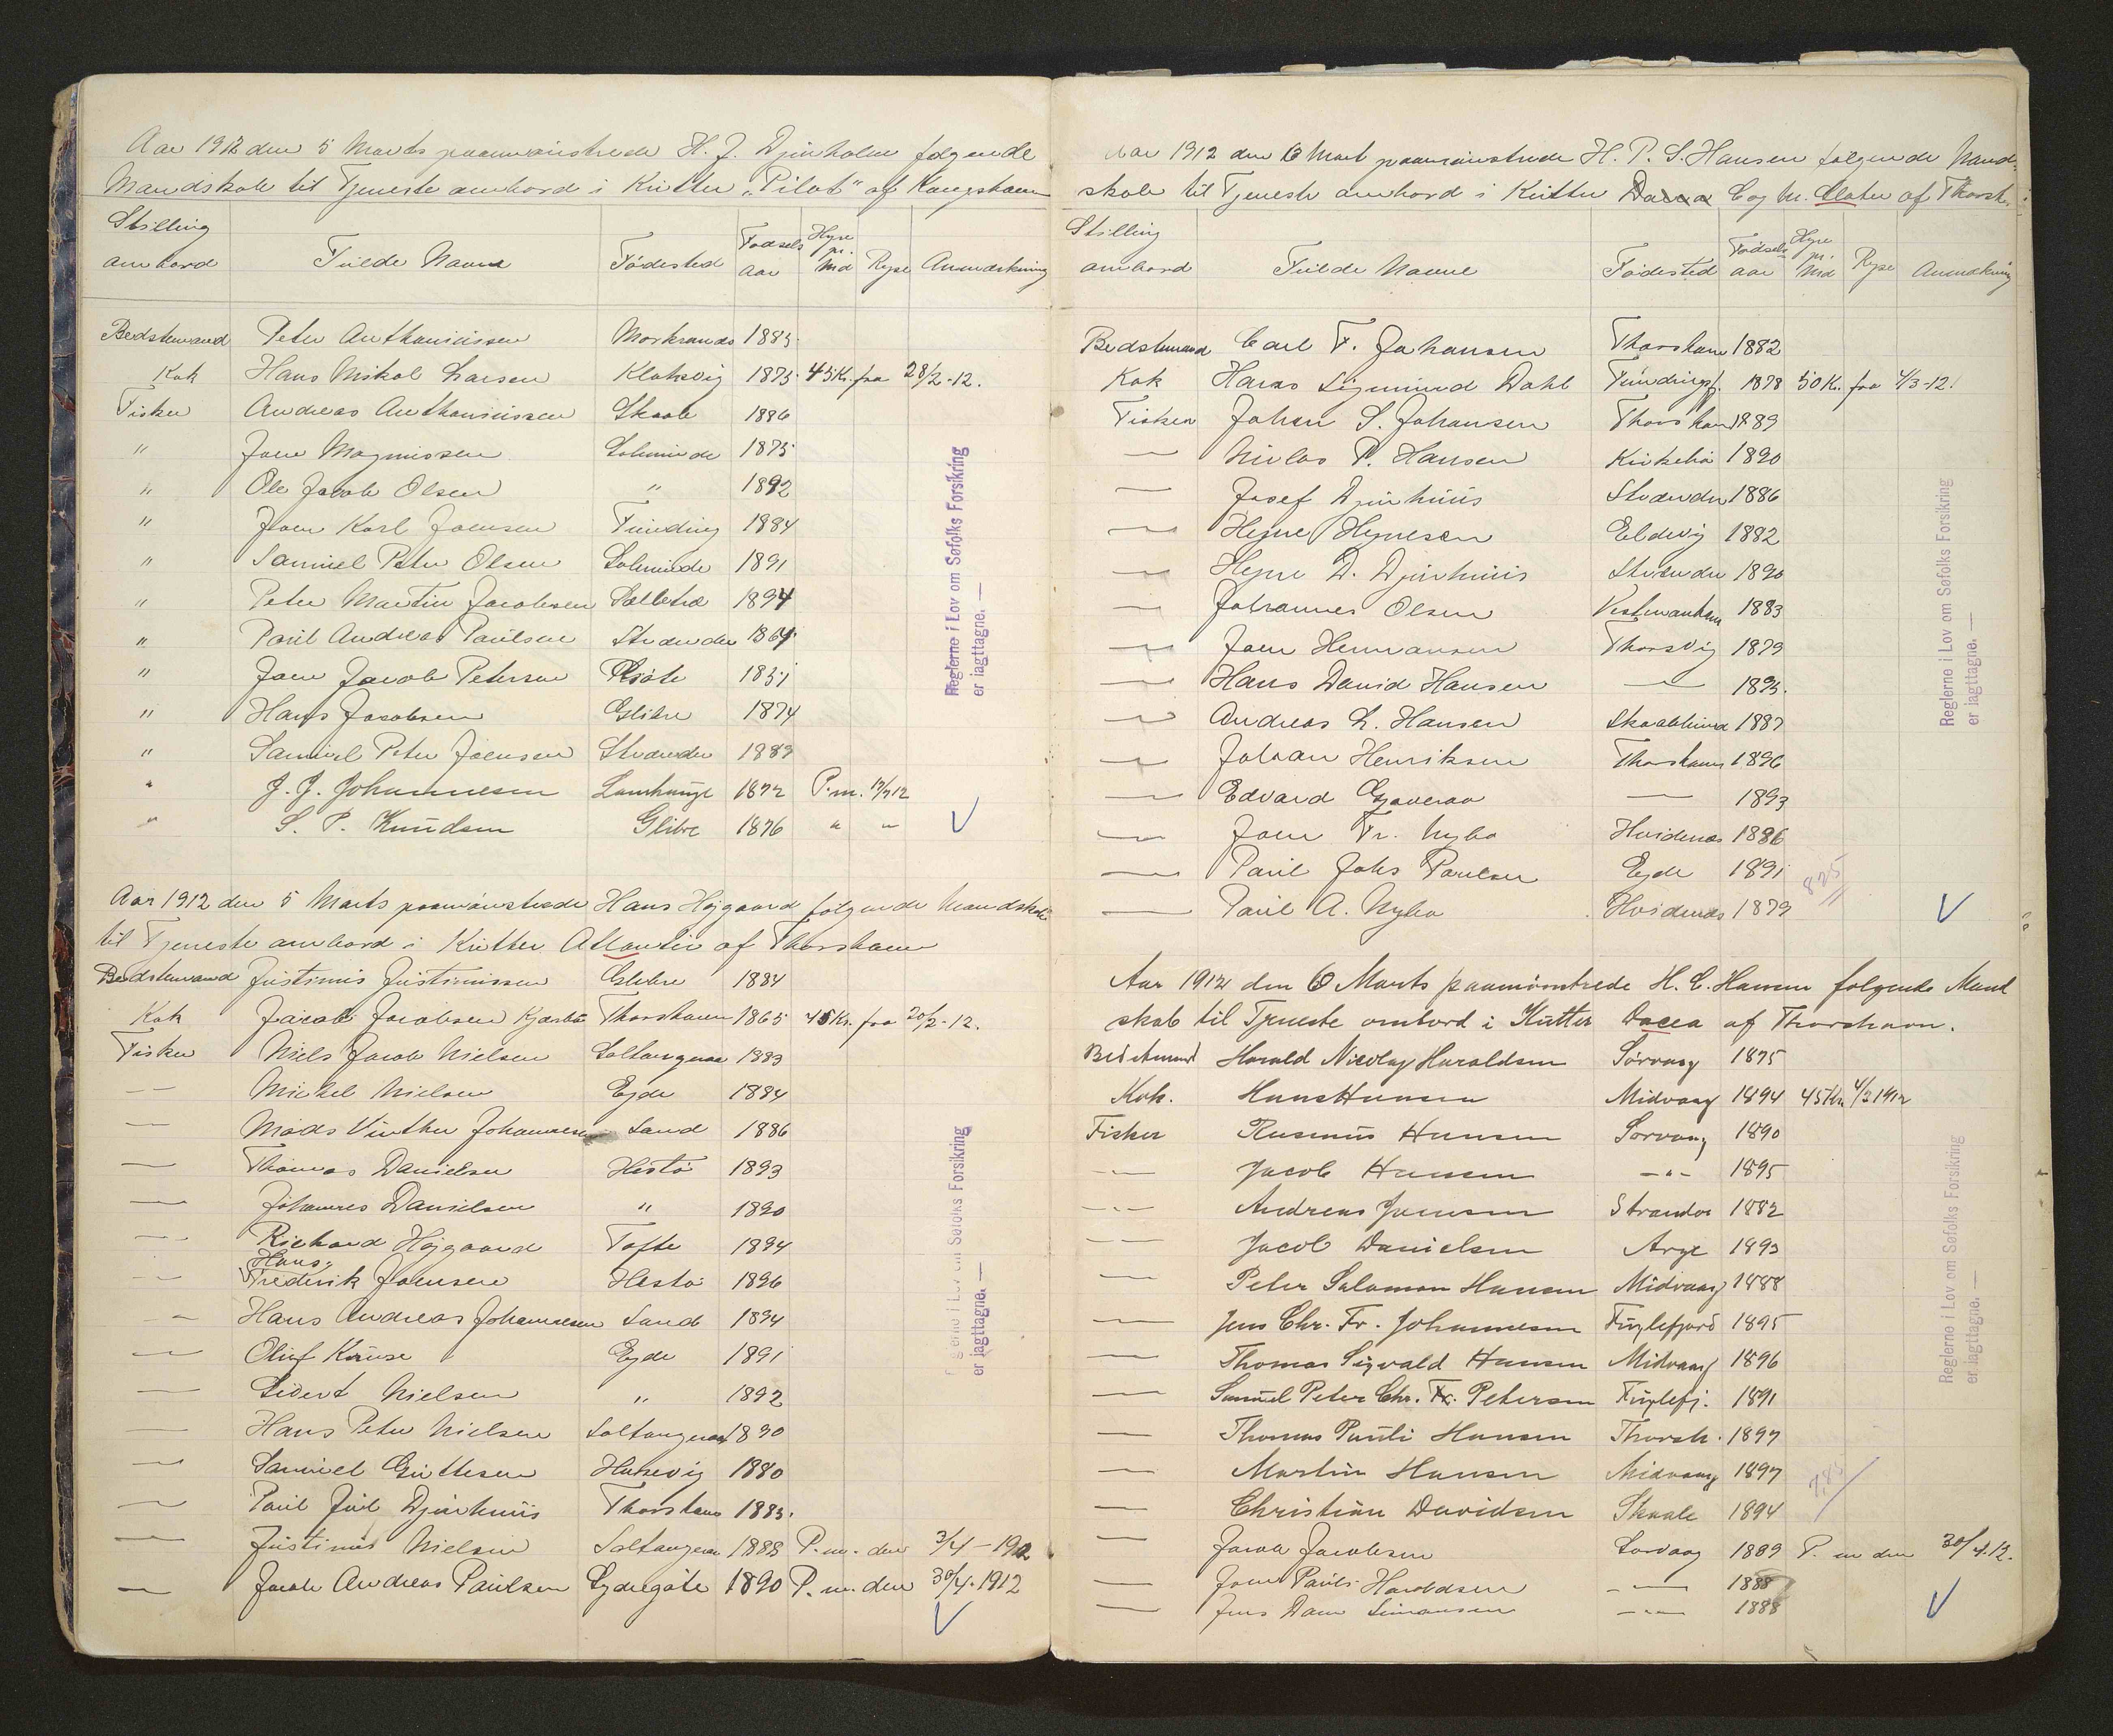 Aar 1912 den 5 Marts paamönstrede H. J. Djurholm følgende
Mandskab til Tjeneste ombord i Kutter „Pilot" af Kongshavn
Stilling ombord Fulde Navn Fødested Fødsels aar Hyre pr. Md Rejse Anmærkning
Bedstemand Peter Anthoniussen Morkranes 1885
Kok Hans Niskol Larsen Klaksvig 1875 45 Kr. fra 28/2-12.
Fisker Andreas Anthoniussen Skaale 1886
" Joen Magnussen Solmunde 1875
" Ole Jacob Olsen " 1892
" Joen Karl Joensen Funding 1884
" Samuel Peter Olsen Solmunde 1891
" Peter Martin Jacobsen Selletræ 1894
" Poul Andreas Poulsen Strænder 1864
" Joen Jacob Petersen 1851
" Hans Jacobsen Glibre 1874
" Samuel Peter Joensen Strænder 1889
" J. J. Johannesen Lamhauge 1872 P.m. 12/3 12
" S. P. Knudsen Glibre 1876 " "
Reglerne i Lov om Søfolks Forsikring
er iagttagne. —
Aar 1912 den 5 Marts paamönstrede Hans Højgaard følgende Mandskab
til Tjeneste ombord i Kutter Atlantic af Thorshavn
Bedstemand Justinus Justinussen Glibre 1884
Kok Jacob Jacobsen Kjærbo Thorshavn 1865 45 Kr. fra 20/2-12.
Fisker Niels Jacob Nielsen Saltangeraa 1883
— Mikkel Nielsen Ejde 1884
— Mads Winther Johannesen Sand 1886
— Thomas Danielsen Hestø 1893
— Johannes Danielsen " 1890
— Richard Højgaard Tofte 1894
Hans
— Frederik Joensen Hestø 1896
— Hans Andreas Johannesen Sand 1894
— Oluf Kruse Ejde 1891
— Sivert Nielsen " 1892
— Hans Peter Nielsen Saltangeraa 1890
— Samuel Guttesen Husevig 1880
— Poul Juul Djurhuus Thorshavn 1883.
— Justinus Nielsen Saltangeraa 1888 P.m. den 3/4-1912
— Jacob Andreas Poulsen Sydregøte 1890 P.m. den 30/4.1912
Reglerne i Lov om Søfolks Forsikring
er iagttagne. —
Aar 1912 den 6 Mart paamönstrede H. P. S. Hansen følgende Mand-
skab til Tjeneste ombord i Kutter Dacea Cog M. Slater af Thorsh.
Stilling ombord Fulde Navne Fødested Fødsels aar Hyre pr. Md Rejse Anmærkning
Bedstemand Carl F. Johansen Thorshavn 1882
Kok Hans Sigmund Dahl Fundingsf. 1878 50 Kr. fra 4/3-12.
Fisker Johan S. Johansen Thorshavn 1889
— Niclas P. Hansen Kirkebø 1890
— Josef Djurhuus Strænder 1886
— Hejne Hejnesen Eldevig 1882
— Hejne D. Djurhuus Strænder 1890
— Johannes Olsen Vestmanhavn 1883
— Joen Hermansen Thorsvig 1879
— Hans David Hansen — 1895.
— Andreas L. Hansen Skaalebund 1887
— Johan Henriksen Thorshavn 1896
— Edvard Gjaveraa — 1893
— Joen Fr. Nybo Hvidenæs 1886
— Poul Johs Poulsen Ejde 1891
— Poul A. Nybo Hvidenæs 1879
825
Reglerne i Lov om Søfolks Forsikring
er iagttagne. —
Aar 1912 den 6 Marts paamönstrede H. C. Hansen følgende Mand
skab til Tjeneste ombord i Kutter Dacea af Thorshavn.
Bedstemand Harald Nicolaj Haraldsen Sørvaag 1875
Kok. Hans Hansen Midvaag 1894 45 Kr. 4/3 1912
Fisker Rasmus Hansen Sørvaag 1890
— Jacob Hansen -"- 1895
— Andreas Joensen Strander 1882
— Jacob Danielsen Arge 1893
— Peter Salomon Hansen Midvaag 1888
— Jens Chr. Fr. Johannesen Fuglefjord 1895
— Thomas Sigvald Hansen Midvaag 1896
— Samuel Peter Chr. Fr. Petersen Fuglefj. 1891
— Thomas Pauli Hansen Thorsh. 1897
— Martin Hansen Midvaag 1897
— Christian Davidsen Skaale 1894
— Jacob Jacobsen Sørvaag 1889 P. m den 30/4.12.
— Joen Pauli Haraldsen -"- 1888
— Jens Dam Simonsen -"- 1888
Reglerne i Lov om Søfolks Forsikring
er iagttagne. —